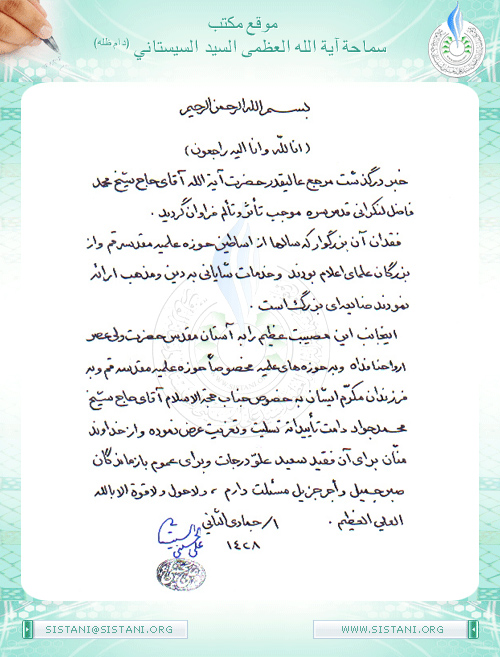 موقع مكتب
سماحة آية الله العظمى السيد السيستاني (دام ظله)
بسم الله الرحمن الرحیم
(انا للّه وانا الیه راجعون)
خبر درگذشت مرجع عالیقدر حضرت آیة الله آقای حاج شیخ محمد
فاضل لنکرانی قدس سره موجب تأثر وتألم فراوان گردید .
فقدان آن بزرگوار که سالها از اساطین حوزه علمیه مقدسه قم واز
بزرگان علمای اعلام بودند وخدمات شایانی به دین ومذهب ارائه
نمودند ضایعه‌ای بزرگ است .
اینجانب این مصیبت عظیم را به آستان مقدس حضرت ولی عصر
ارواحنا فداه وبه حوزه های علمیه مخصوصاً حوزه علمیه مقدسه قم وبه
فرزندان مکرّم ایشان به خصوص جناب حجة الاسلام آقای حاج شیخ
محمد جواد دامت تأییداته تسلیت وتعزیت عرض نموده واز خداوند
منّان برای آن فقید سعید علوّ درجات وبرای عموم بازماندگان
صبر جمیل وأجر جزیل مسئلت دارم ، ولا حول ولا قوة الا بالله
العلي العظیم .
١/جمادی الثاني
١٤٢٨
علي الحسیني السیستاني
SISTANI@SISTANI.ORG
WWW.SISTANI.ORG